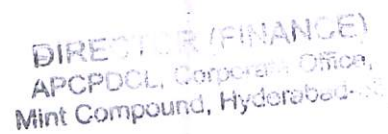 DIRECTOR (FINANCE)
APCPDCL, Corporate Office,
Mint Compound, Hyderabad-